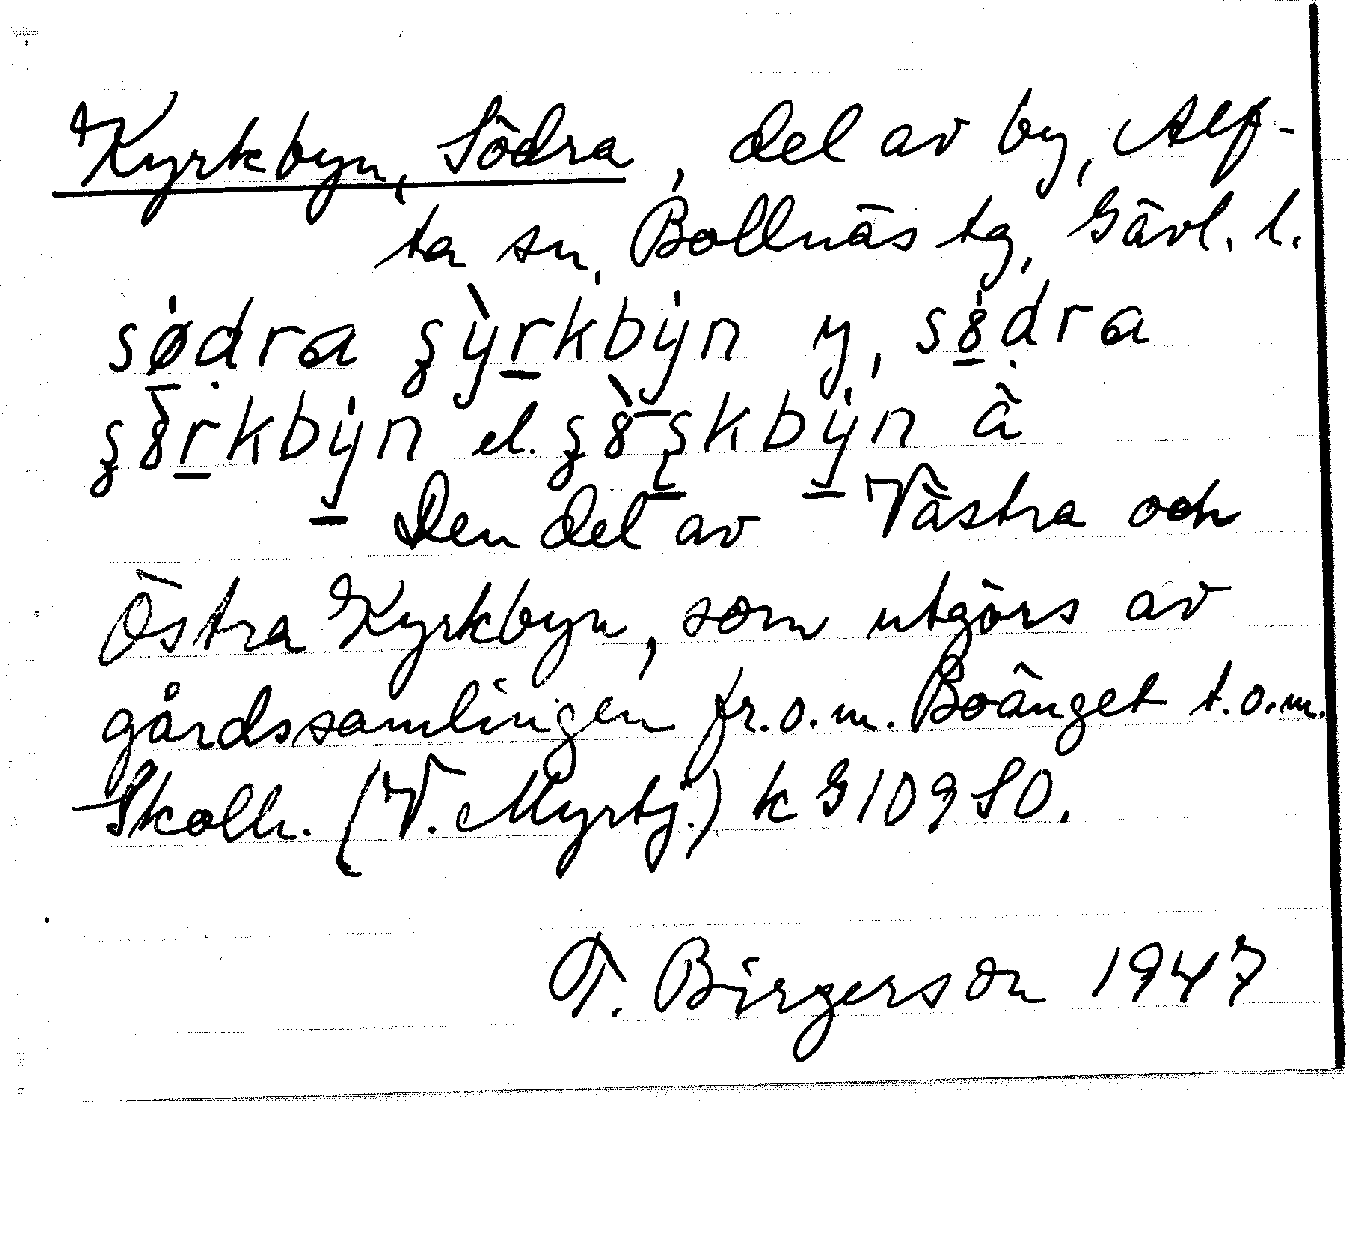 Kyrkbyn, Södra, del av by, Alf-
ta sn, Bollnäs tg, Gävl. l.
sø̱dra ʂỳṟkbyn y, sȣ̱dra
ʂȣ̀ṟkbyṉ el. ʂȣ̀ʂkbyṉ ä
Den del av Västra och
Östra Kyrkbyn, som utgörs av
gårdssamlingen fr.o.m. Boänget t.o.m.
Skolh. (V. Myrtj.) k G10980.
T. Birgerson 1947